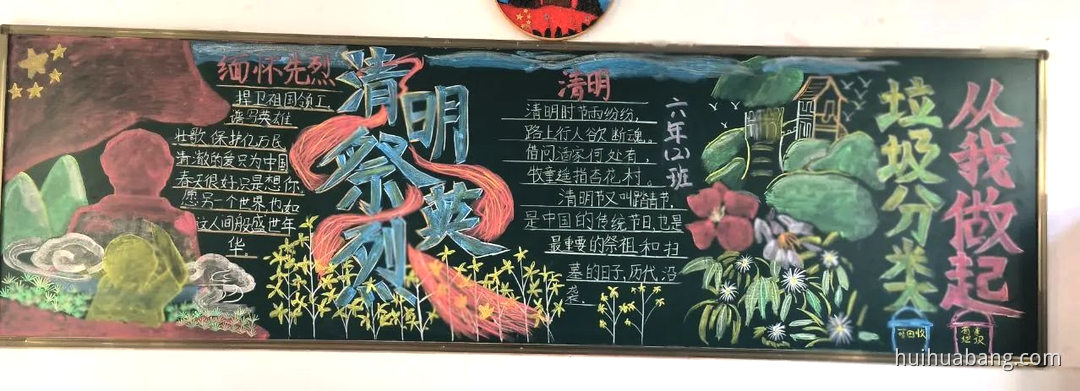 缅怀先烈
捍卫祖国领土
谱写英雄
壮歌保护亿万民
清澈的爱只为中国
春天很好只是想你
愿另一个世界也如
这人间般盛世年
华。
清明祭英烈
清明
清明时节雨纷纷,
路上行人欲断魂。
借问酒家何处有,
牧童遥指杏花村。
清明节又叫踏青节,
是中国的传统节日,也是
最重要的祭祖和扫
墓的日子,历代沿
袭。
六年(2)班
垃圾分类
从我做起
可回收
huihuabang.com